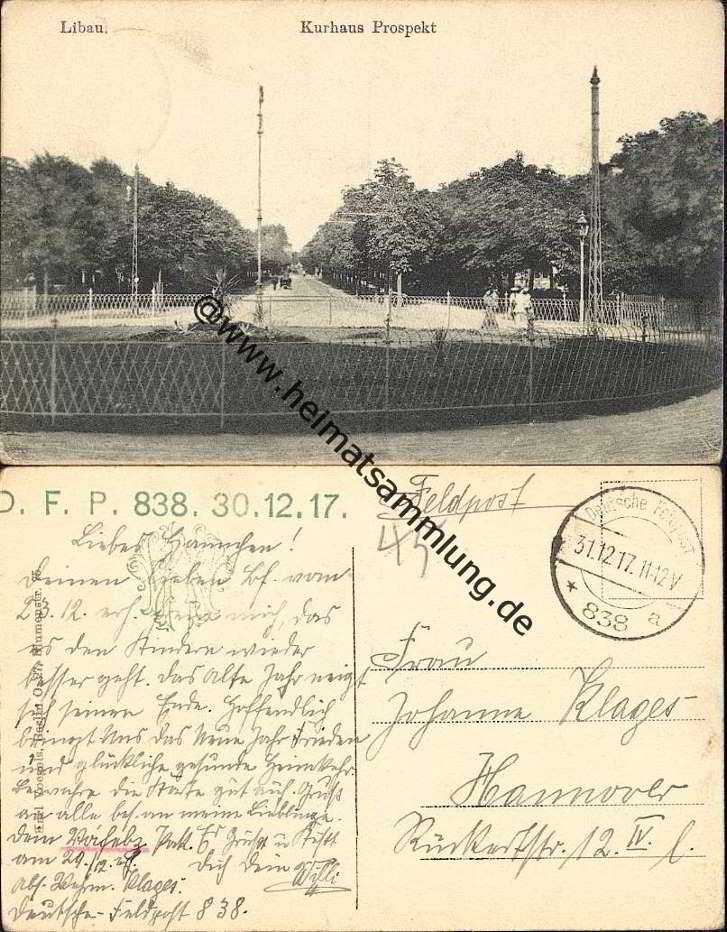 Libau.
Kurhaus Prospekt
@www.heimatsammlung.de
D. F. P. 838. 30.12.17.
Feldpost
45
Deutsche Feldpost
31.12.17. 11-12 V
* 838 a
Liebes Hannchen!
Deinen lieben Bf. vom
23.12. erh. freue mich, das
es den Kindern wieder
besser geht. Das alte Jahr neigt
sich seinem Ende. Hoffendlich
bringt uns das neue Jahr Frieden
und glückliche gesunde Heimkehr.
Bewahre die Karte gut auf. Gruß
an alle bes. an meine Lieblinge.
Dein Pak. Gruß u. Kuß
am 29./12. Dich Dein Willi
Abs. Wehrm. Klages.
Deutsche-Feldpost 838.
Frau
Johanne Klages
Hannover
Rückertstr. 12. IV. l.